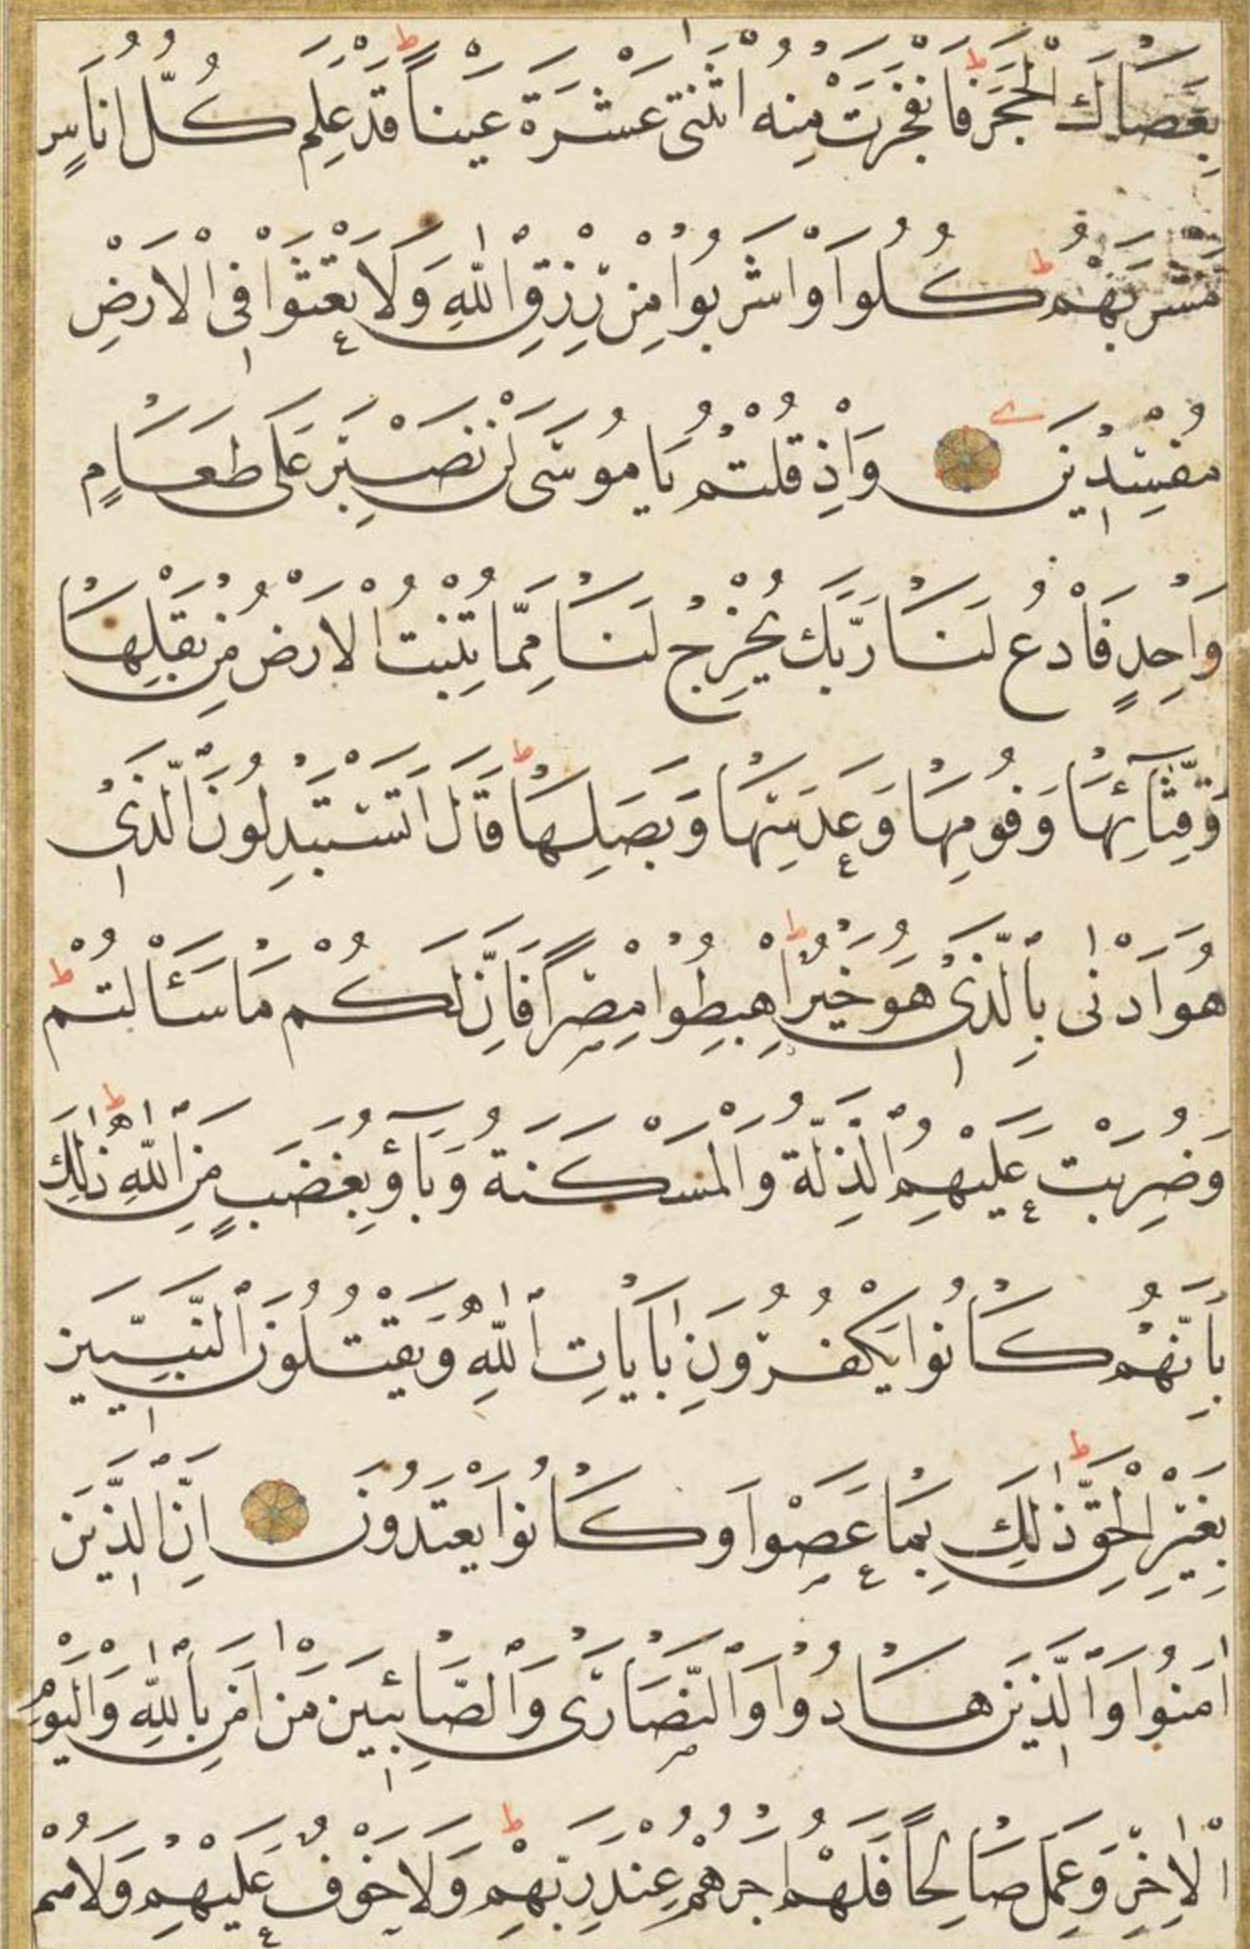 بِعَصَاكَ الْحَجَرَ فَانْفَجَرَتْ مِنْهُ اثْنَتَى عَشْرَةَ عَيْنًا قَدْ عَلِمَ كُلُّ اُنَاسٍ
مَشْرَبَهُمْ كُلُوا وَاشْرَبُوا مِنْ رِزْقِ اللّٰهِ وَلَا تَعْثَوْا فِى الْاَرْضِ
مُفْسِدِينَ وَاِذْ قُلْتُمْ يَا مُوسَى لَنْ نَصْبِرَ عَلَى طَعَامٍ
وَاحِدٍ فَادْعُ لَنَا رَبَّكَ يُخْرِجْ لَنَا مِمَّا تُنْبِتُ الْاَرْضُ مِنْ بَقْلِهَا
وَقِثَّآئِهَا وَفُومِهَا وَعَدَسِهَا وَبَصَلِهَا قَالَ اَتَسْتَبْدِلُونَ الَّذِى
هُوَ اَدْنٰى بِالَّذِى هُوَ خَيْرٌ اِهْبِطُوا مِصْرًا فَاِنَّ لَكُمْ مَا سَئَالْتُمْ
وَضُرِبَتْ عَلَيْهِمُ الذِّلَّةُ وَالْمَسْكَنَةُ وَبَآؤُ بِغَضَبٍ مِنَ اللّٰهِ ذٰلِكَ
بِاَنَّهُمْ كَانُوا يَكْفُرُونَ بِاٰيَاتِ اللّٰهِ وَيَقْتُلُونَ النَّبِيِّينَ
بِغَيْرِ الْحَقِّ ذٰلِكَ بِمَا عَصَوْا وَكَانُوا يَعْتَدُونَ اِنَّ الَّذِينَ
اٰمَنُوا وَالَّذِينَ هَادُوا وَالنَّصَارَى وَالصَّابِئِينَ مَنْ اٰمَنَ بِاللّٰهِ وَالْيَوْمِ
الْاٰخِرِ وَعَمِلَ صَالِحًا فَلَهُمْ اَجْرُهُمْ عِنْدَ رَبِّهِمْ وَلَا خَوْفٌ عَلَيْهِمْ وَلَا هُمْ